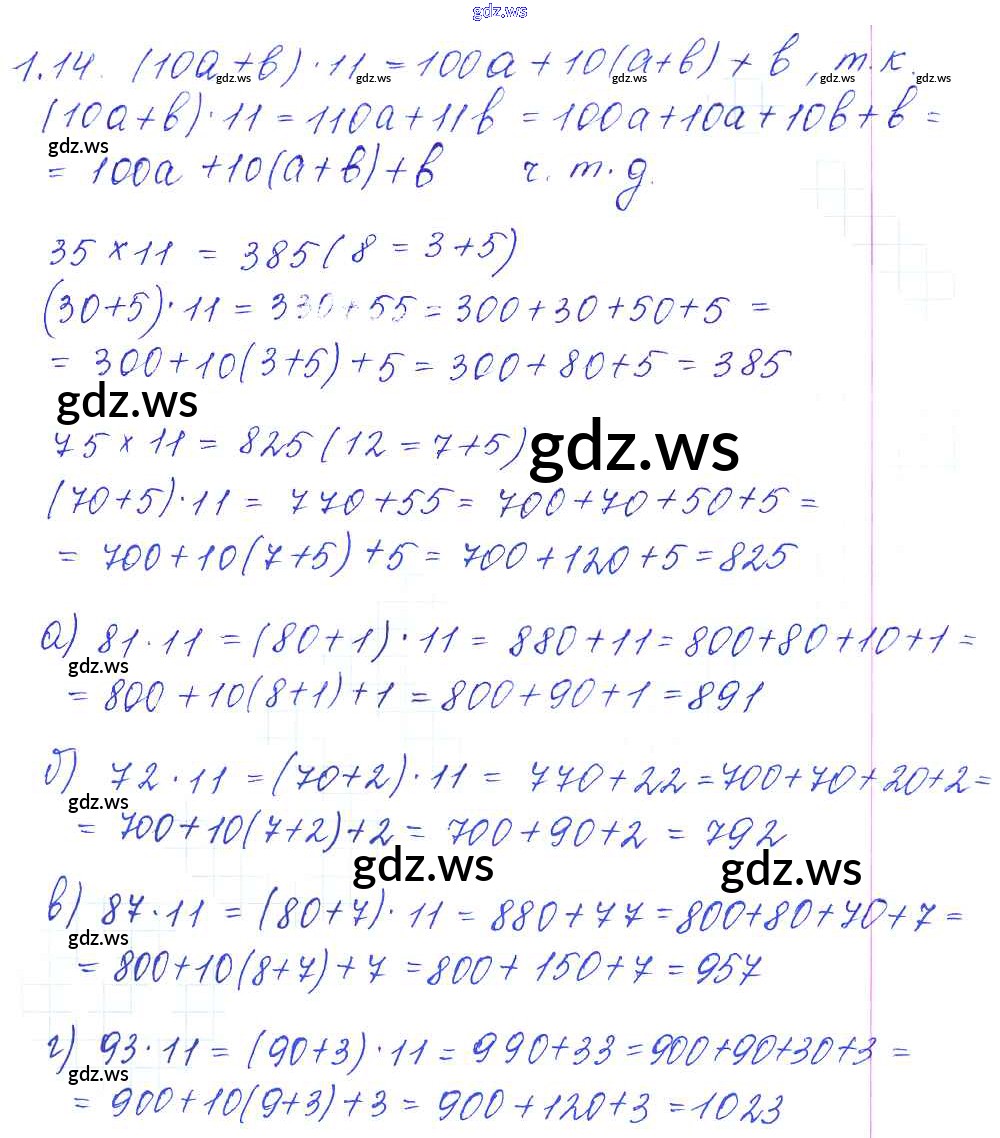 gdz.ws
1.14. (10a+b)·11=100a+10(a+b)+b, т.к.
gdz.ws gdz.ws gdz.ws gdz.ws gdz.ws
(10a+b)·11=110a+11b=100a+10a+10b+b=
gdz.ws
=100a+10(a+b)+b ч.т.д.
35×11=385(8=3+5)
(30+5)·11=330+55=300+30+50+5=
=300+10(3+5)+5=300+80+5=385
gdz.ws
75×11=825(12=7+5)
gdz.ws
(70+5)·11=770+55=700+70+50+5=
=700+10(7+5)+5=700+120+5=825
а) 81·11=(80+1)·11=880+11=800+80+10+1=
gdz.ws
=800+10(8+1)+1=800+90+1=891
б) 72·11=(70+2)·11=770+22=700+70+20+2=
gdz.ws
=700+10(7+2)+2=700+90+2=792
gdz.ws gdz.ws
в) 87·11=(80+7)·11=880+77=800+80+70+7=
gdz.ws
=800+10(8+7)+7=800+150+7=957
г) 93·11=(90+3)·11=990+33=900+90+30+3=
gdz.ws
=900+10(9+3)+3=900+120+3=1023